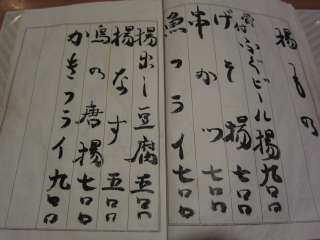 揚もの
ふぐビール揚九〇〇
げそ揚七〇〇
串かつ七〇〇
魚フライ七〇〇
揚出し豆腐五〇〇
揚なす五〇〇
鳥の唐揚七〇〇
かきフライ九〇〇